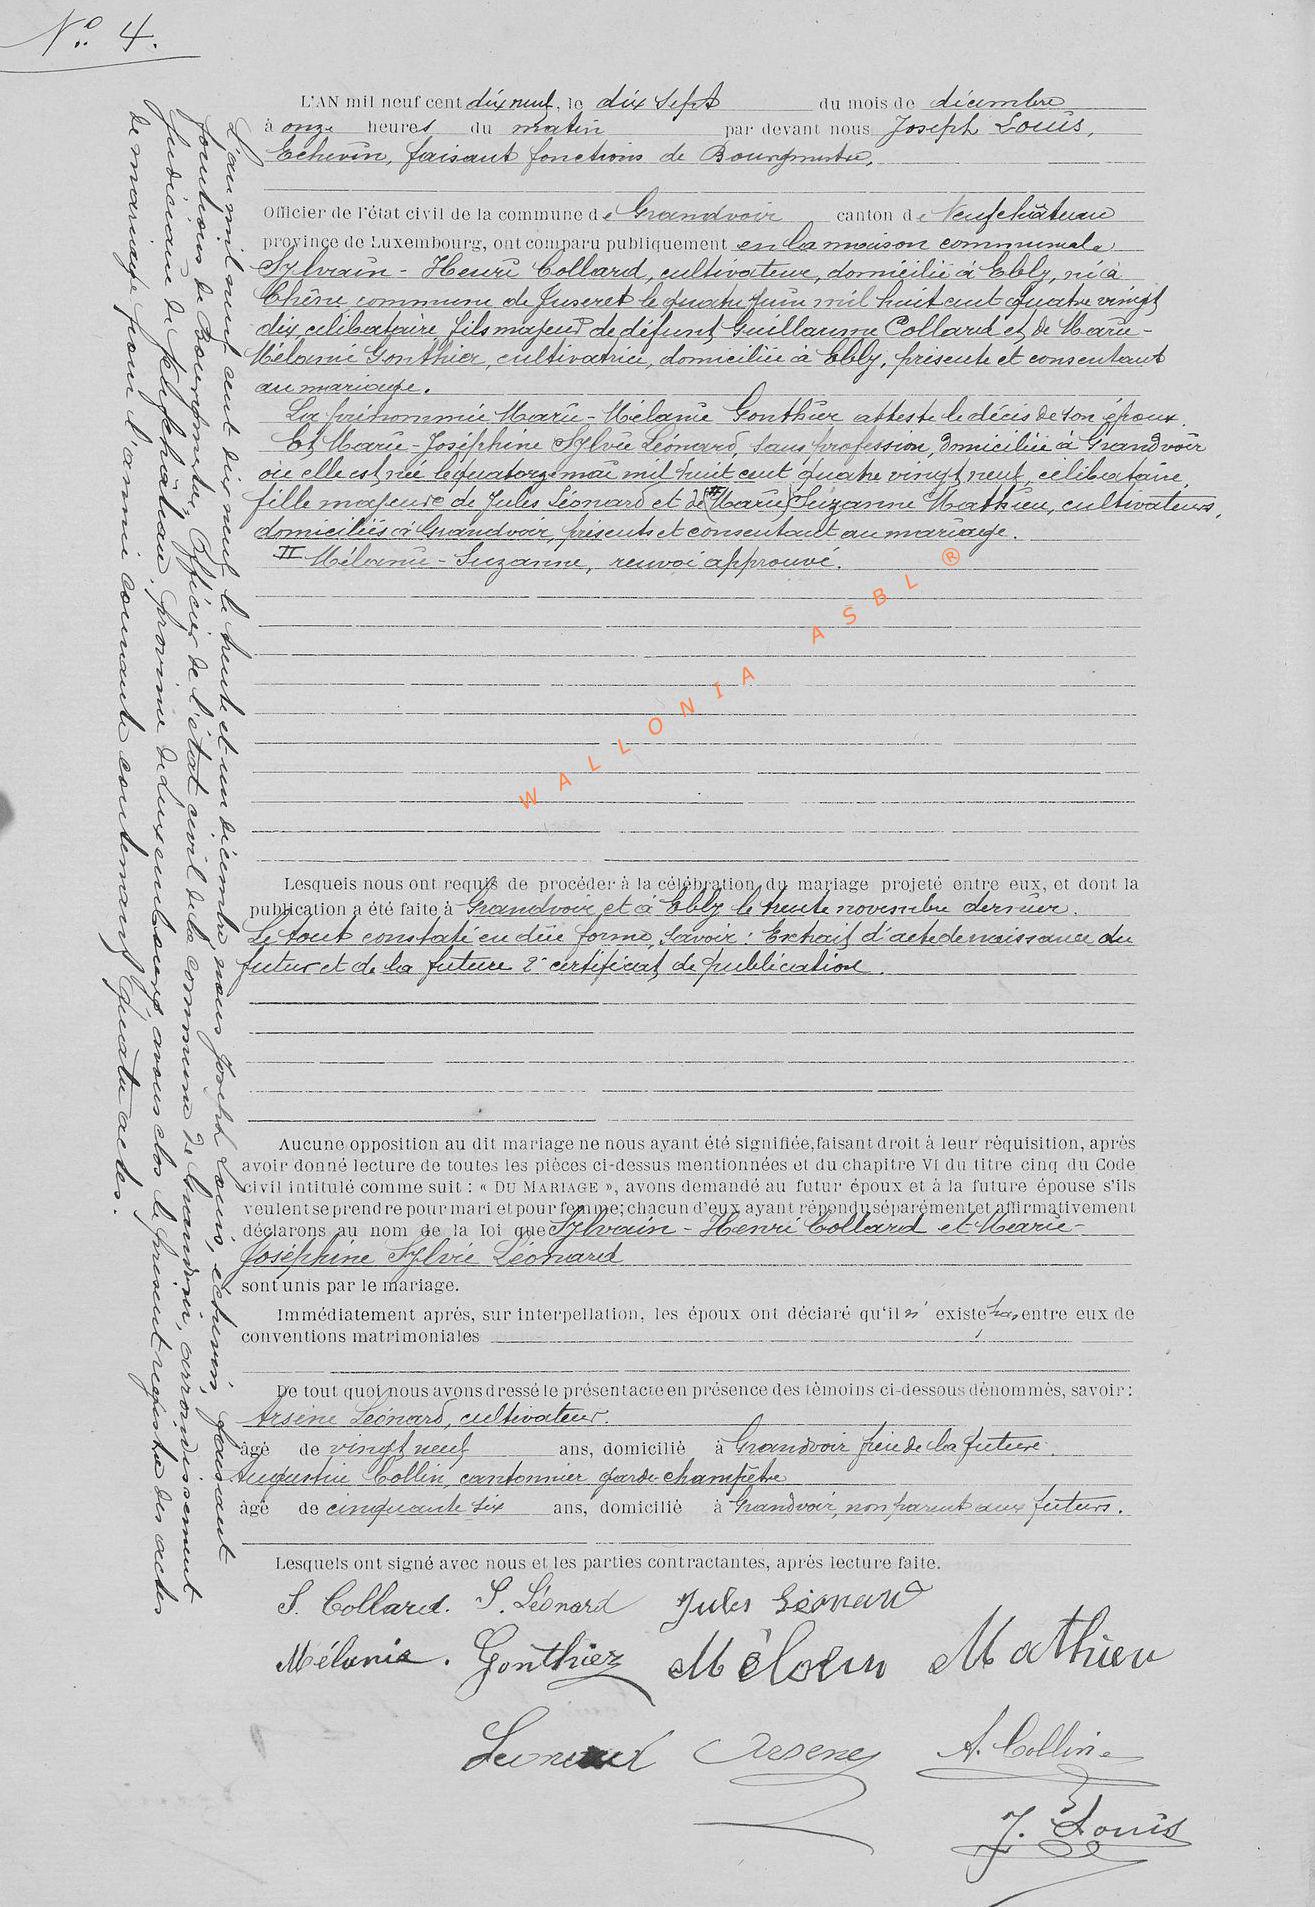 No. 4.
L'AN mil neuf cent dix neuf, le dix sept du mois de décembre
à onze heures du matin par devant nous Joseph Louis,
Echevin, faisant fonctions de Bourgmestre,
Officier de l'état civil de la commune de Grandvoir canton de Neufchâteau
province de Luxembourg, ont comparu publiquement en la maison communale
Sylvain-Henri Collard, cultivateur, domicilié à Ebly, né à
Chêne commune de Juseret le quatre juin mil huit cent quatre vingt
dix célibataire, fils majeur de défunt Guillaume Collard et de Marie-
Mélanie Gonthier, cultivatrice, domiciliée à Ebly, présente et consentant
au mariage.
La prénommée Marie-Mélanie Gonthier atteste le décès de son époux.
Et Marie-Joséphine Sylvie Léonard, sans profession, domiciliée à Grandvoir
où elle est née le quatorze mai mil huit cent quatre vingt neuf, célibataire,
fille majeure de Jules Léonard et de (II Marie) Suzanne Mathieu, cultivateurs,
domiciliés à Grandvoir, présents et consentant au mariage.
II Mélanie-Suzanne, renvoi approuvé.
WALLONIA ASBL ®
Lesquels nous ont requis de procéder à la célébration du mariage projeté entre eux, et dont la
publication a été faite à Grandvoir et à Ebly le trente novembre dernier.
Le tout constaté en due forme, savoir: Extrait d'acte de naissance du
futur et de la future 2° certificat de publication.
Aucune opposition au dit mariage ne nous ayant été signifiée, faisant droit à leur réquisition, après
avoir donné lecture de toutes les pièces ci-dessus mentionnées et du chapitre VI du titre cinq du Code
civil intitulé comme suit : « DU MARIAGE », avons demandé au futur époux et à la future épouse s'ils
veulent se prendre pour mari et pour femme; chacun d'eux ayant répondu séparément et affirmativement
déclarons au nom de la loi que Sylvain-Henri Collard et Marie-
Joséphine Sylvie Léonard
sont unis par le mariage.
Immédiatement après, sur interpellation, les époux ont déclaré qu'il n' existe pas entre eux de
conventions matrimoniales
De tout quoi nous avons dressé le présent acte en présence des témoins ci-dessous dénommés, savoir:
Arsène Léonard, cultivateur.
âgé de vingt neuf ans, domicilié à Grandvoir frère de la future.
Augustin Collin, cantonnier garde champêtre
âgé de cinquante six ans, domicilié à Grandvoir, non parent aux futurs.
Lesquels ont signé avec nous et les parties contractantes, après lecture faite.
S. Collard. S. Léonard Jules Léonard
Mélanie. Gonthiez Mathieu
Leonard Arsene A. Collin
J. Louis
L'an mil neuf cent dix neuf le trente et un décembre nous Joseph Louis, échevin, faisant
fonctions de Bourgmestre, Officier de l'état civil de la commune de Grandvoir, arrondissement
judiciaire de Neufchâteau, province de Luxembourg, avons clos le présent registre des actes
de mariage pour l'année courante contenant quatre actes.